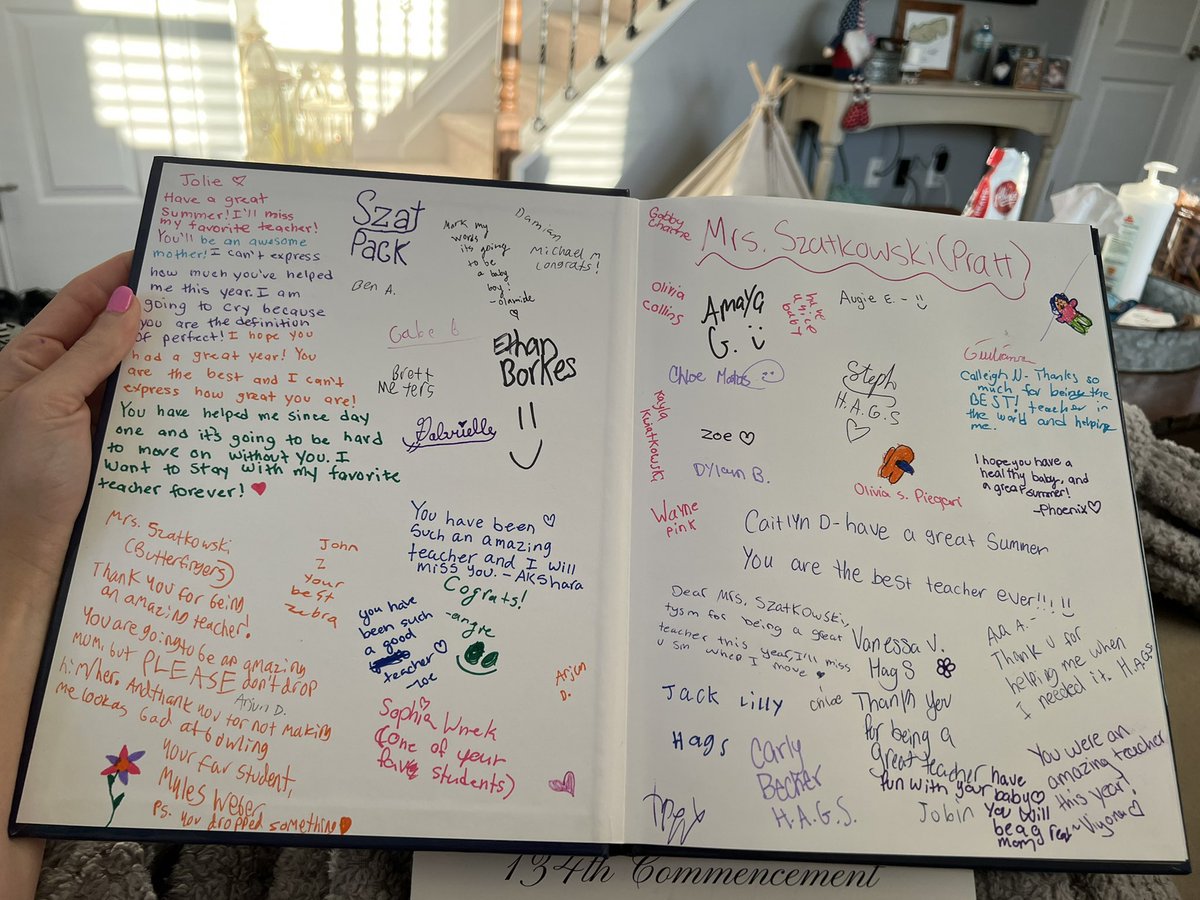 Jolie ♡
Have a great
Summer! I'll miss
my favorite teacher!
You'll be an awesome
mother! I can't express
how much you've helped
me this year. I am
going to cry because
you are the definition
of perfect! I hope you
had a great year! You
are the best and I can't
express how great you are!
You have helped me since day
one and it's going to be hard
to move on without you. I
want to stay with my favorite
teacher forever! ♥
Szat
Pack
Mark my
words
its going
to be
a baby
boy!
Damian
Michael M
congrats!
Ben A.
Gabe
Ethan
Borkes
Brett
Meters
Gabrielle
You have been ♡
such an amazing
teacher and I will
miss you. - Akshara
Cograts!
-angie
Mrs. Szatkowski
(Butterfingers)
Thank you for being
an amazing teacher!
You are going to be an amazing
mom, but PLEASE don't drop
him/her. And thank you for not making
me look as bad at bowling
your fav student,
Myles Weber
Ps. You dropped something ♥
John
Z
your
best
zebra
you have
been such
a good
teacher ♡
-Zoe
Arjun D.
Arjun
D.
Sophia Wnek
(one of your
fav students)
Gabby
Charne
Mrs. Szatkowski (Pratt)
Olivia
Collins
Amaya
G.
have
a nice
baby
Augie E. -
Chloe Matos
Steph
H.A.G.S
♡
Giulianna
Calleigh N- Thanks so
much for being the
BEST! teacher in
the world and helping
me.
Kayla
Kwiatkowski
Zoe ♡
Dylan B.
Olivia S. Piegari
I hope you have a
healthy baby, and
a great summer!
-Phoenix ♡
Wayne
pink
Caitlyn D- have a great Summer
You are the best teacher ever!!!!!
Dear Mrs. Szatkowski,
tysm for being a great
teacher this year, I'll miss
u sm when I move ♥
chloe
Vanessa V.
Hags
Aa A.-
Thank u for
helping me when
I needed it. H.A.G.S
Jack Lilly
Hags
Thank You
for being a
great teacher have
fun with your baby ♡
Jobin
Carly
Becher
H.A.G.S.
You were an
amazing teacher
this year!
You will
be a g
reat
mom
~Viyona ♡
134th Commencement